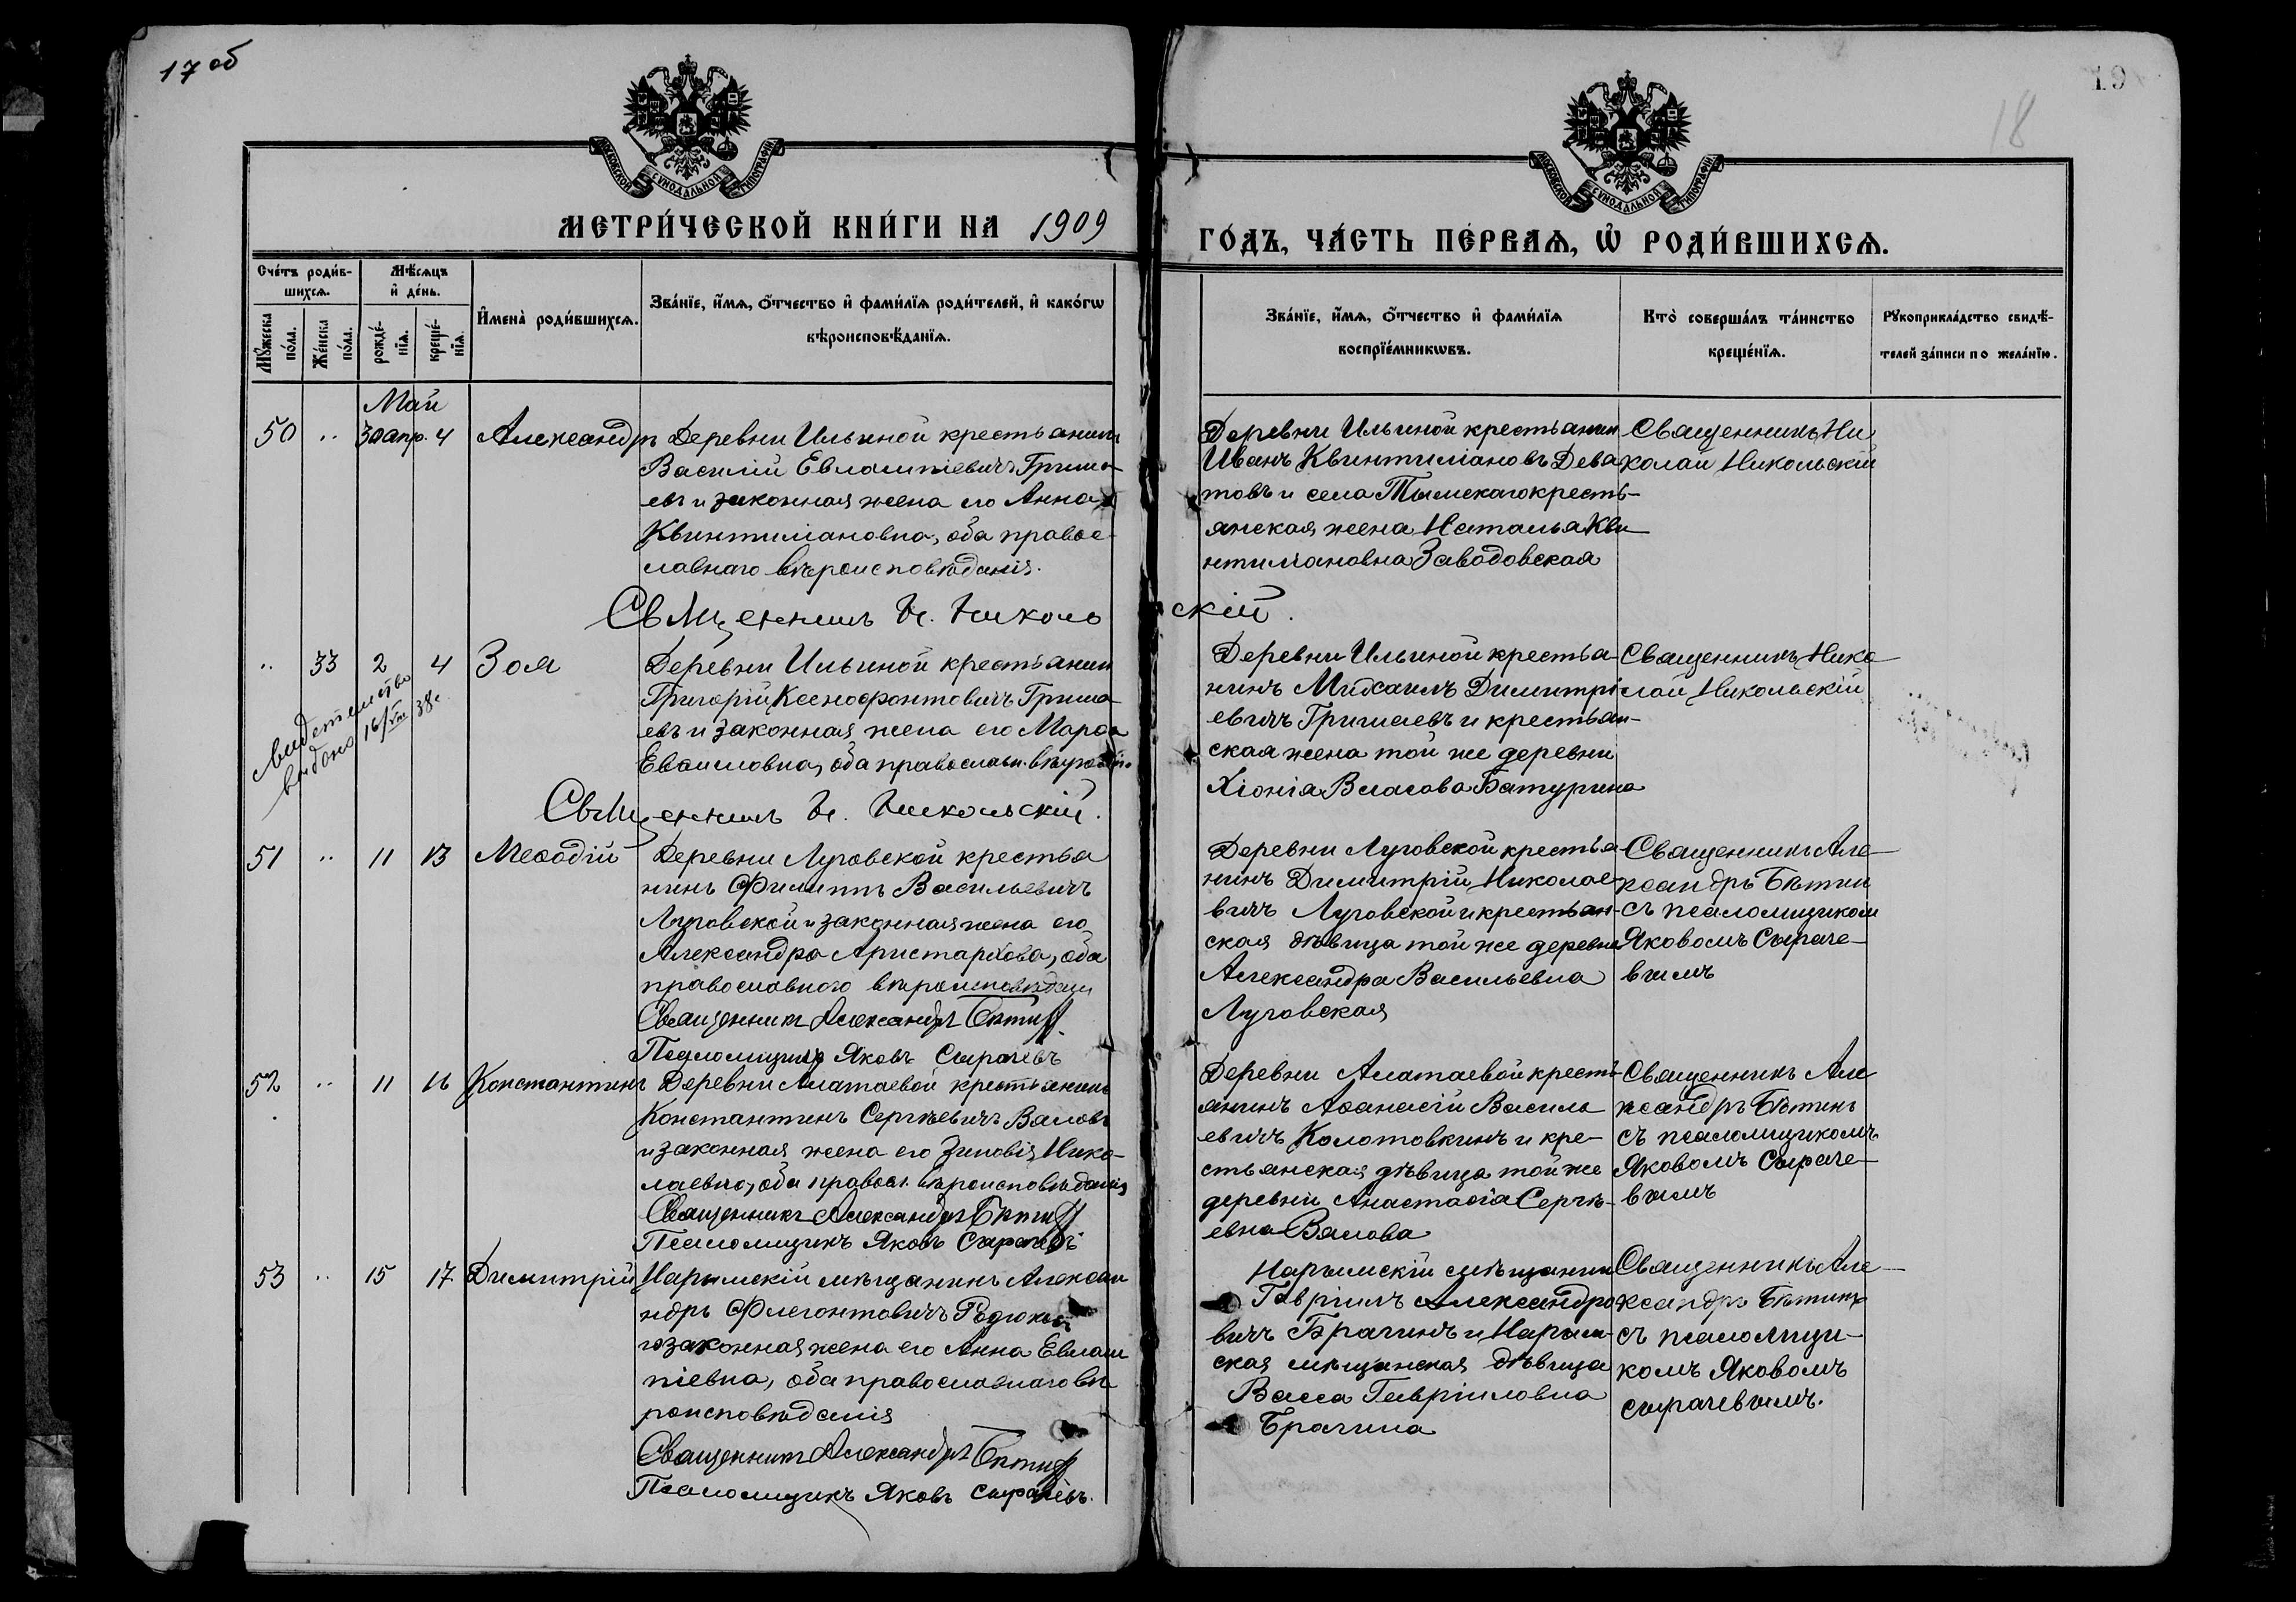 17 об
19
18
МОСКОВСКОЙ СУНОДАЛЬНОЙ ТИПОГРАФІИ
МОСКОВСКОЙ СУНОДАЛЬНОЙ ТИПОГРАФІИ
МЕТРИ́ЧЕСКОЙ КНИ́ГИ НА 1909
ГО́ДЪ, ЧА́СТЬ ПЕ́РВАѦ, Ѡ҆ РОДИ́ВШИХСѦ.
Сче́тъ роди́в-
шихсѧ.
Мꙋ́жеска по́ла.
Же́нска по́ла.
Мѣ́сѧцъ
и҆ де́нь.
рожде́-нїѧ.
креще́-нїѧ.
И҆мена̀ роди́вшихсѧ.
Зва́нїе, и҆́мѧ, о҆́тчество и҆ фами́лїѧ роди́телей, и҆ како́гѡ
вѣроисповѣ́данїѧ.
Зва́нїе, и҆́мѧ, о҆́тчество и҆ фами́лїѧ
воспрїе́мникѡвъ.
Кто̀ соверша́лъ та́инство
креще́нїѧ.
Рꙋкоприкла́дство свидѣ́-
телей за́писи по жела́нїю.
Май
50 .. 30 апр. 4 Александръ Деревни Ильиной крестьянинъ
Василій Евлампіевичъ Гриша-
евъ и законная жена его Анна
Квинтиліановна, оба правос-
лавнаго вѣроисповѣданія.
Деревни Ильиной крестьянин
Иванъ Квинтиліановъ Дева
товъ и села Тымскаго кресть-
янская жена Наталья Кви-
нтиліановна Заводовская
Священникъ Ни
колай Никольскій
Священникъ Н. Николь
скій.
.. 33 2 4 Зоя Деревни Ильиной крестьянин
Григорій Ксенофонтовичъ Гриша-
евъ и законная жена его Марѳа
оба православн.
Свидетельство
выдано 16/VIII 38 г.
Деревни Ильиной крестья-
нинъ Михаилъ Димитрі
евичъ Гришаевъ и крестьян-
ская жена той же деревни
Хіонія Власова Батурина
Священникъ Нико-
лай Никольскій
Священникъ Н. Никольскій.
51 .. 11 13 Меѳодій Деревни Луговской крестья
нинъ Филиппъ Васильевичъ
Луговской и законная жена его
Александра Аристархова, оба
православного вѣроисповѣдан
Священникъ Александръ Бѣтин
Псаломщикъ Яковъ Сырачевъ
Деревни Луговской крестья-
нинъ Димитрій Николае-
вичъ Луговской и крестьян-
ская дѣвица той же деревни
Александра Васильевна
Луговская
Священникъ Але-
ксандръ Бѣтин
съ псаломщиком
Яковомъ Сыраче-
вымъ
52 .. 11 16 Константинъ Деревни Алатаевой крестьянинъ
Константинъ Сергѣевичъ Вяловъ
и законная жена его Зиновія Нико-
лаевна, оба правосл. вѣроисповѣданія
Священникъ Александръ Бѣтин
Псаломщикъ Яковъ Сырачевъ
Деревни Алатаевой кресть-
янинъ Аѳанасій Василь
евичъ Колотовкинъ и кре-
стьянская дѣвица той же
деревни Анастасія Сергѣ-
евна Вялова
Священникъ Але
ксандръ Бѣтинъ
съ псаломщикомъ
Яковомъ Сыраче-
вымъ
53 .. 15 17 Димитрій Нарымскій мѣщанинъ Алекса
ндръ Флегонтовичъ Родюков
и законная жена его Анна Евлам
піевна, оба православнаго вѣ
роисповѣданія
Священникъ Александръ Бѣтин
Псаломщикъ Яковъ Сырачевъ.
Нарымскій мѣщанин
Гавріилъ Александро
вичъ Брагинъ и Нарым-
ская мѣщанская дѣвица
Васса Гавріиловна
Брагина
Священникъ Але-
ксандръ Бѣтинъ
съ псаломщи-
комъ Яковомъ
Сырачевымъ.